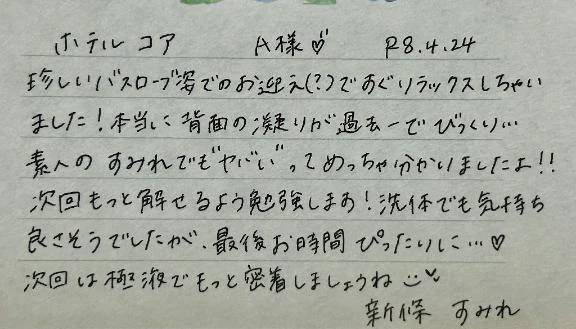 ホテル コア A様♡ R8.4.24
珍しいバスローブ姿でのお迎え(?)ですぐリラックスしちゃい
ました!本当に背面の凝りが過去一でびっくり…
素人のすみれでも"ヤバい"ってめっちゃ分かりましたよ!!
次回もっと解せるよう勉強しまあ!洗体でも気持ち
良さそうでしたが、最後お時間ぴったりに…♡
次回は極液でもっと密着しましょうね
新條 すみれ